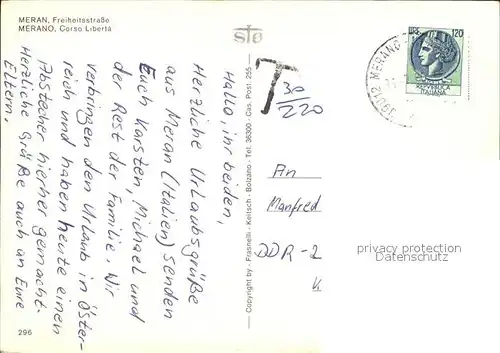 MERAN, Freiheitsstraße
MERANO, Corso Libertà
Hallo, ihr beiden,
Herzliche Urlaubsgrüße
aus Meran (Italien) senden
Euch Karsten, Michael und
der Rest der Familie. Wir
verbringen den Urlaub in Öster-
reich und haben heute einen
Abstecher hierher gemacht.
Herzliche Grüße auch an Eure
Eltern.
296
Copyright by · Frasnelli - Keitsch - Bolzano - Tel. 36300 - Cas. Post. 255
T
30
/220
LIRE 120
REPVBBLICA
ITALIANA
39012 MERANO
An
Manfred
DDR-2
K
privacy protection
Datenschutz